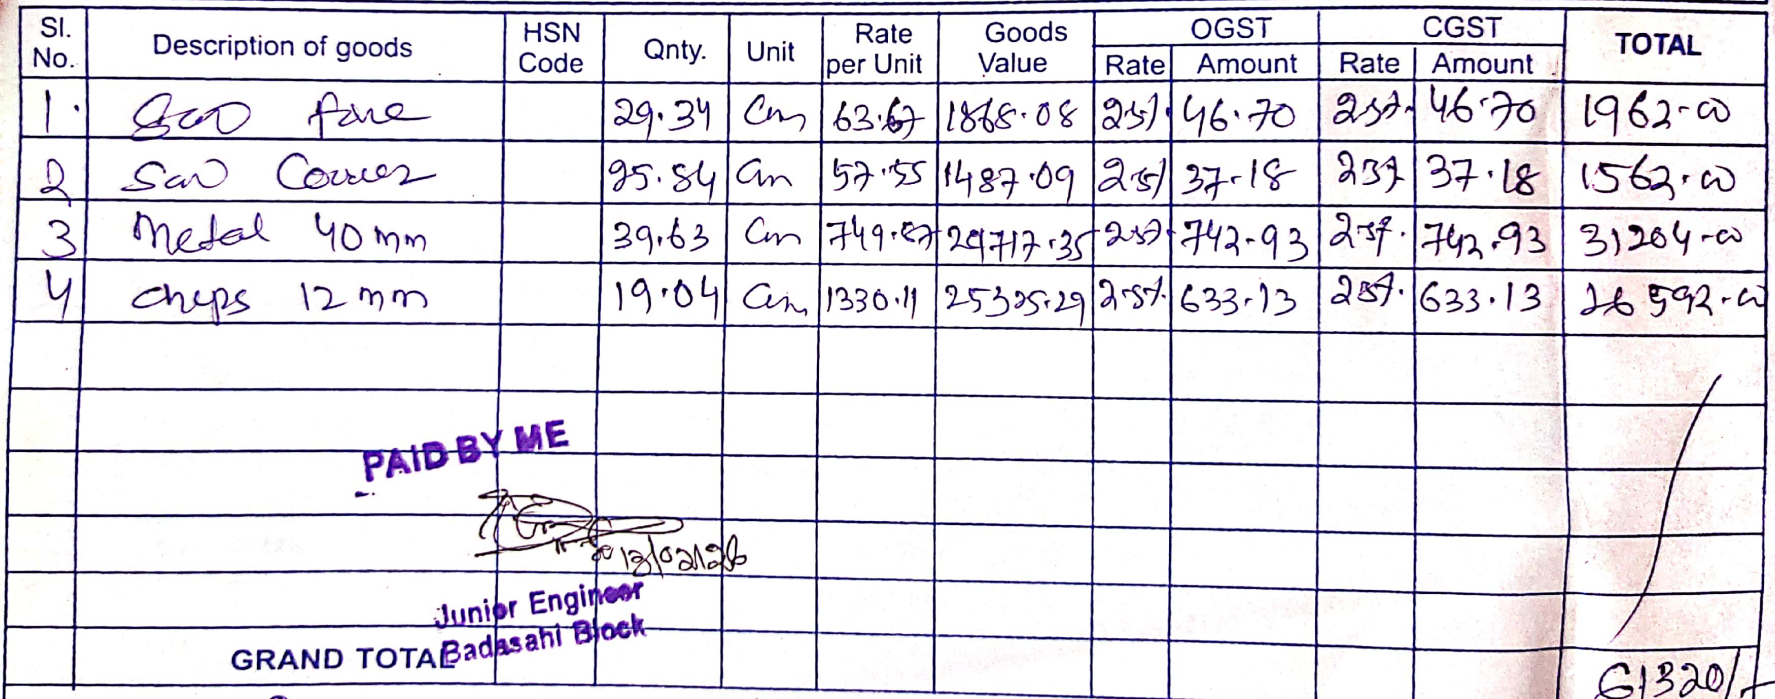 Sl. No. Description of goods HSN Code Qnty. Unit Rate per Unit Goods Value OGST CGST TOTAL
Rate Amount Rate Amount
1. 29.34 Cm 63.67 1868.08 2.5% 46.70 2.5% 46.70 1962-00
2 25.84 Cm 57.55 1487.09 2.5% 37.18 2.5% 37.18 1562.00
3 Metal 40 mm 39.63 Cm 749.87 29717.35 2.5% 742.93 2.5% 742.93 31204-00
4 Chips 12 mm 19.04 Cm 1330.11 25325.29 2.5% 633.13 2.5% 633.13 26592-00
PAID BY ME
Junior Engineer
Badasahi Block
GRAND TOTAL 61320/-